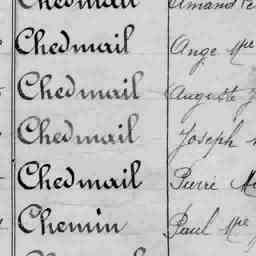 Chedmail Amand
Chedmail Ange Mie
Chedmail Auguste
Chedmail Joseph
Chedmail Pierre
Chemin Paul Mie